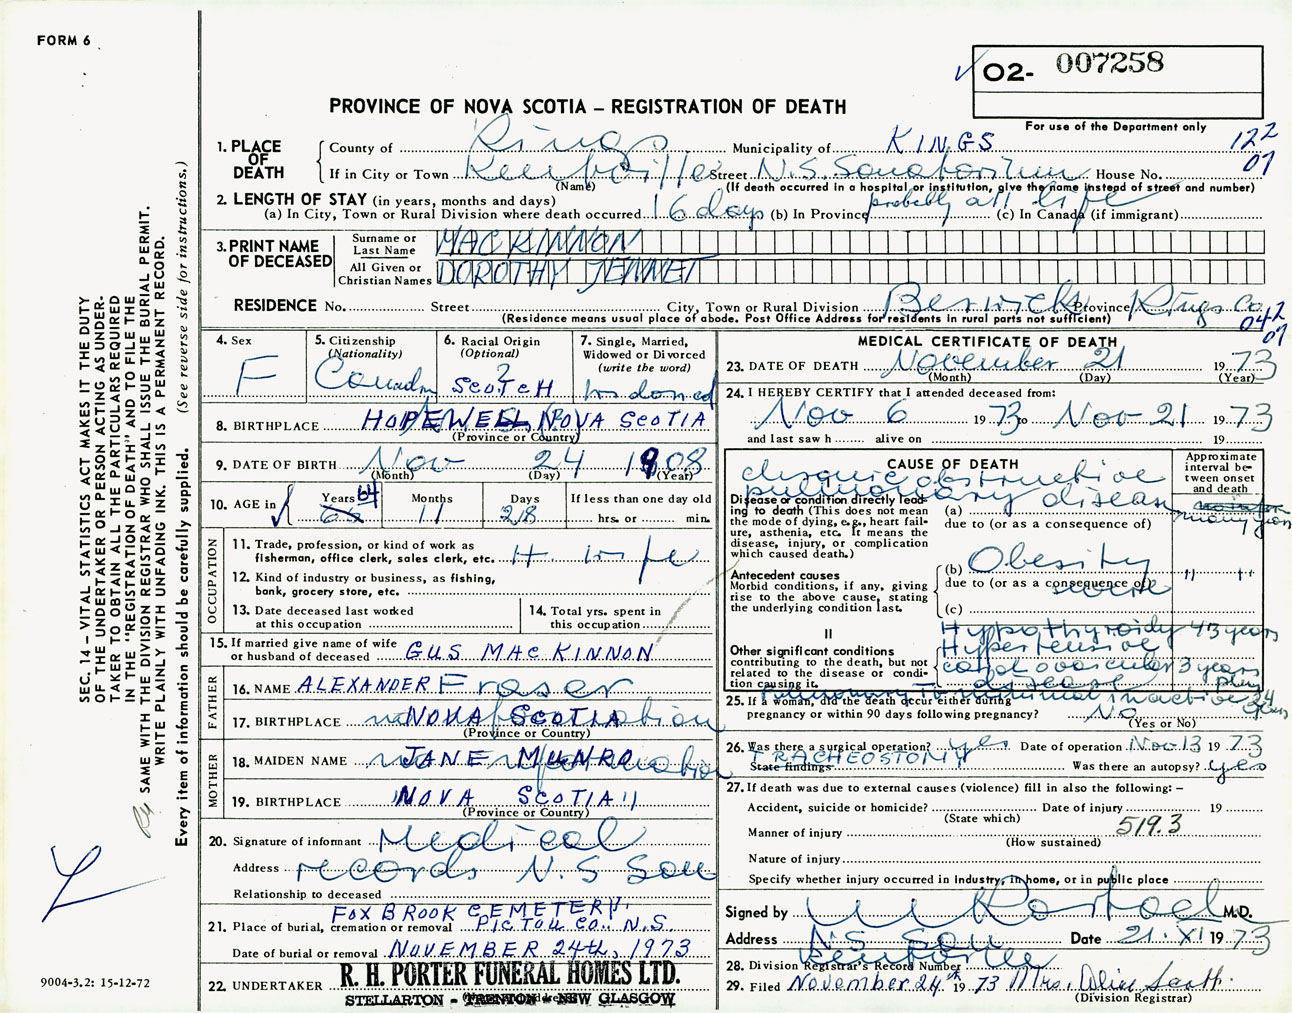 FORM 6
O2- 007258
For use of the Department only
PROVINCE OF NOVA SCOTIA – REGISTRATION OF DEATH
122
07
1. PLACE OF DEATH
County of Kings Municipality of KINGS
If in City or Town Kentville Street N.S. Sanatorium House No.
(Name) (If death occurred in a hospital or institution, give the name instead of street and number)
2. LENGTH OF STAY (in years, months and days)
(a) In City, Town or Rural Division where death occurred 16 days (b) In Province probably all life (c) In Canada (if immigrant)
3. PRINT NAME OF DECEASED
Surname or Last Name MACKINNON
All Given or Christian Names DOROTHY JENNET
RESIDENCE No. Street City, Town or Rural Division Berwick Province Kings Co.
(Residence means usual place of abode. Post Office Address for residents in rural parts not sufficient)
042
07
4. Sex F
5. Citizenship (Nationality) Canadn
6. Racial Origin (Optional) ? SCOTCH
7. Single, Married, Widowed or Divorced (write the word) Widowed
8. BIRTHPLACE HOPEWELL, NOVA SCOTIA
(Province or Country)
9. DATE OF BIRTH Nov 24 1908
(Month) (Day) (Year)
10. AGE in Years 64 Months 11 Days 28 If less than one day old hrs. or min.
OCCUPATION
11. Trade, profession, or kind of work as fisherman, office clerk, sales clerk, etc. H. wife
12. Kind of industry or business, as fishing, bank, grocery store, etc.
13. Date deceased last worked at this occupation
14. Total yrs. spent in this occupation
15. If married give name of wife or husband of deceased GUS MACKINNON
FATHER
16. NAME ALEXANDER Fraser
17. BIRTHPLACE no information NOVA SCOTIA
(Province or Country)
MOTHER
18. MAIDEN NAME no information JANE MUNRO
19. BIRTHPLACE NOVA SCOTIA "
(Province or Country)
20. Signature of informant Medical
Address records N.S San
Relationship to deceased
21. Place of burial, cremation or removal FOX BROOK CEMETERY. PICTOU CO.. N.S.
Date of burial or removal NOVEMBER 24th, 1973
22. UNDERTAKER R. H. PORTER FUNERAL HOMES LTD.
STELLARTON - TRENTON - NEW GLASGOW
MEDICAL CERTIFICATE OF DEATH
23. DATE OF DEATH November 21 1973
(Month) (Day) (Year)
24. I HEREBY CERTIFY that I attended deceased from:
Nov 6 1973 to Nov 21 1973
and last saw h alive on 19
CAUSE OF DEATH
Approximate interval between onset and death
Disease or condition directly leading to death (This does not mean the mode of dying, e.g., heart failure, asthenia, etc. It means the disease, injury, or complication which caused death.)
(a) chronic obstructive pulmonary disease many years
due to (or as a consequence of)
Antecedent causes
Morbid conditions, if any, giving rise to the above cause, stating the underlying condition last.
(b) Obesity " "
due to (or as a consequence of) severe
(c)
II
Other significant conditions contributing to the death, but not related to the disease or condition causing it.
Hypothyroidy 43 years
Hypertensive cardiovascular disease 3 years plus
Pulmonary Tb minimal inactive 34 years
25. If a woman, did the death occur either during pregnancy or within 90 days following pregnancy? No
(Yes or No)
26. Was there a surgical operation? yes Date of operation Nov 13 1973
State findings TRACHEOSTOMY Was there an autopsy? yes
27. If death was due to external causes (violence) fill in also the following: –
Accident, suicide or homicide? Date of injury 19
(State which)
Manner of injury 519.3
(How sustained)
Nature of injury
Specify whether injury occurred in industry, in home, or in public place
Signed by M.D.
Address N.S San Kentville Date 21.XI 1973
28. Division Registrar's Record Number
29. Filed November 24th 1973 Mrs. Alice Scott
(Division Registrar)
SEC. 14 – VITAL STATISTICS ACT MAKES IT THE DUTY
OF THE UNDERTAKER OR PERSON ACTING AS UNDERTAKER
TO OBTAIN ALL THE PARTICULARS REQUIRED
IN THE "REGISTRATION OF DEATH" AND TO FILE THE
SAME WITH THE DIVISION REGISTRAR WHO SHALL ISSUE THE BURIAL PERMIT.
WRITE PLAINLY WITH UNFADING INK. THIS IS A PERMANENT RECORD.
Every item of information should be carefully supplied. (See reverse side for instructions.)
9004-3.2: 15-12-72